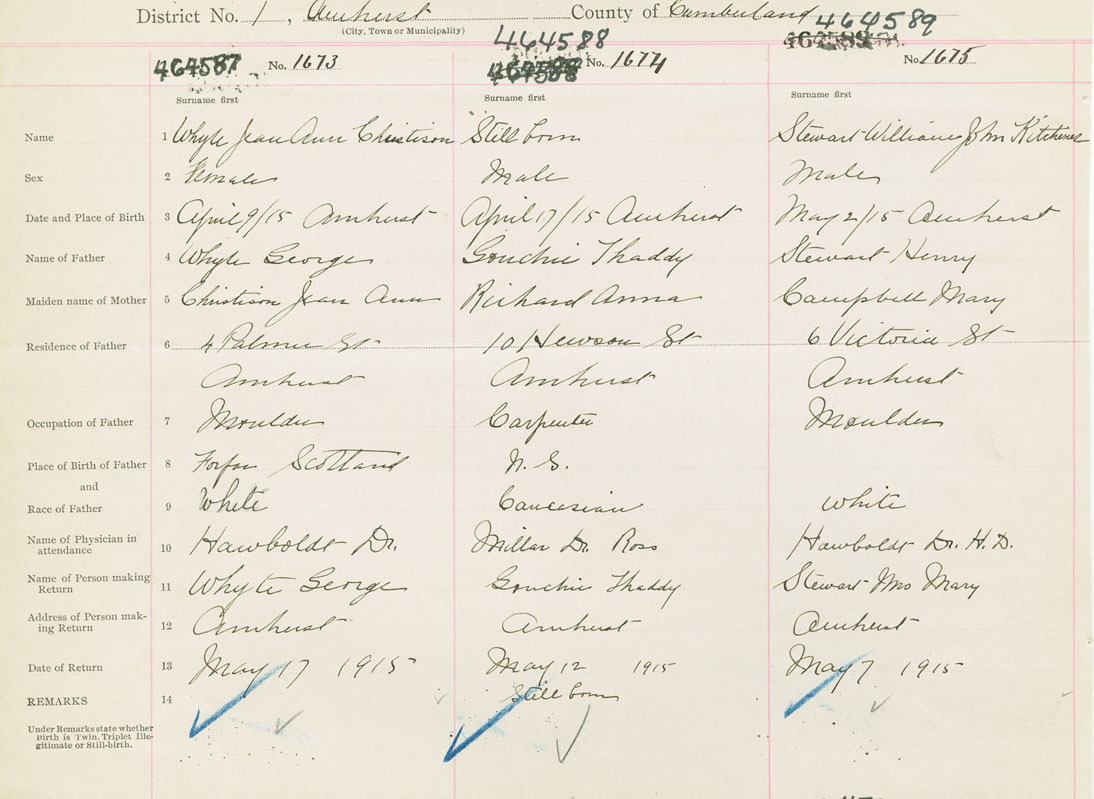 District No. 1, Amherst County of Cumberland
(City, Town or Municipality)
464588 464589
464587 No. 1673 464588 No. 1674 464589 No. 1675
Surname first Surname first Surname first
Name 1 Whyte Jean Ann Christison Still born Stewart William John Kitchener
Sex 2 Female Male Male
Date and Place of Birth 3 April 9/15 Amherst April 17/15 Amherst May 2/15 Amherst
Name of Father 4 Whyte George Gouchie Thaddy Stewart Henry
Maiden name of Mother 5 Christison Jean Ann Richard Anna Campbell Mary
Residence of Father 6 4 Palmer St 10 Hewson St 6 Victoria St
Amherst Amherst Amherst
Occupation of Father 7 Moulder Carpenter Moulder
Place of Birth of Father 8 Forfar Scotland N. S.
and
Race of Father 9 White Caucasian White
Name of Physician in
attendance 10 Hawboldt Dr. Millar Dr. Ross Hawboldt Dr. H. D.
Name of Person making
Return 11 Whyte George Gouchie Thaddy Stewart Mrs Mary
Address of Person mak-
ing Return 12 Amherst Amherst Amherst
Date of Return 13 May 17 1915 May 12 1915 May 7 1915
REMARKS 14 Still born
Under Remarks state whether
Birth is Twin, Triplet Ille-
gitimate or Still-birth.